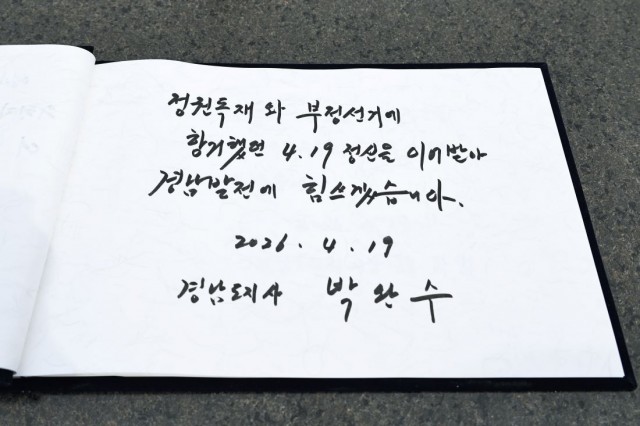 정권독재와 부정선거에
항거했던 4.19 정신을 이어받아
경남발전에 힘쓰겠습니다.
2026. 4. 19
경남도지사 박완수